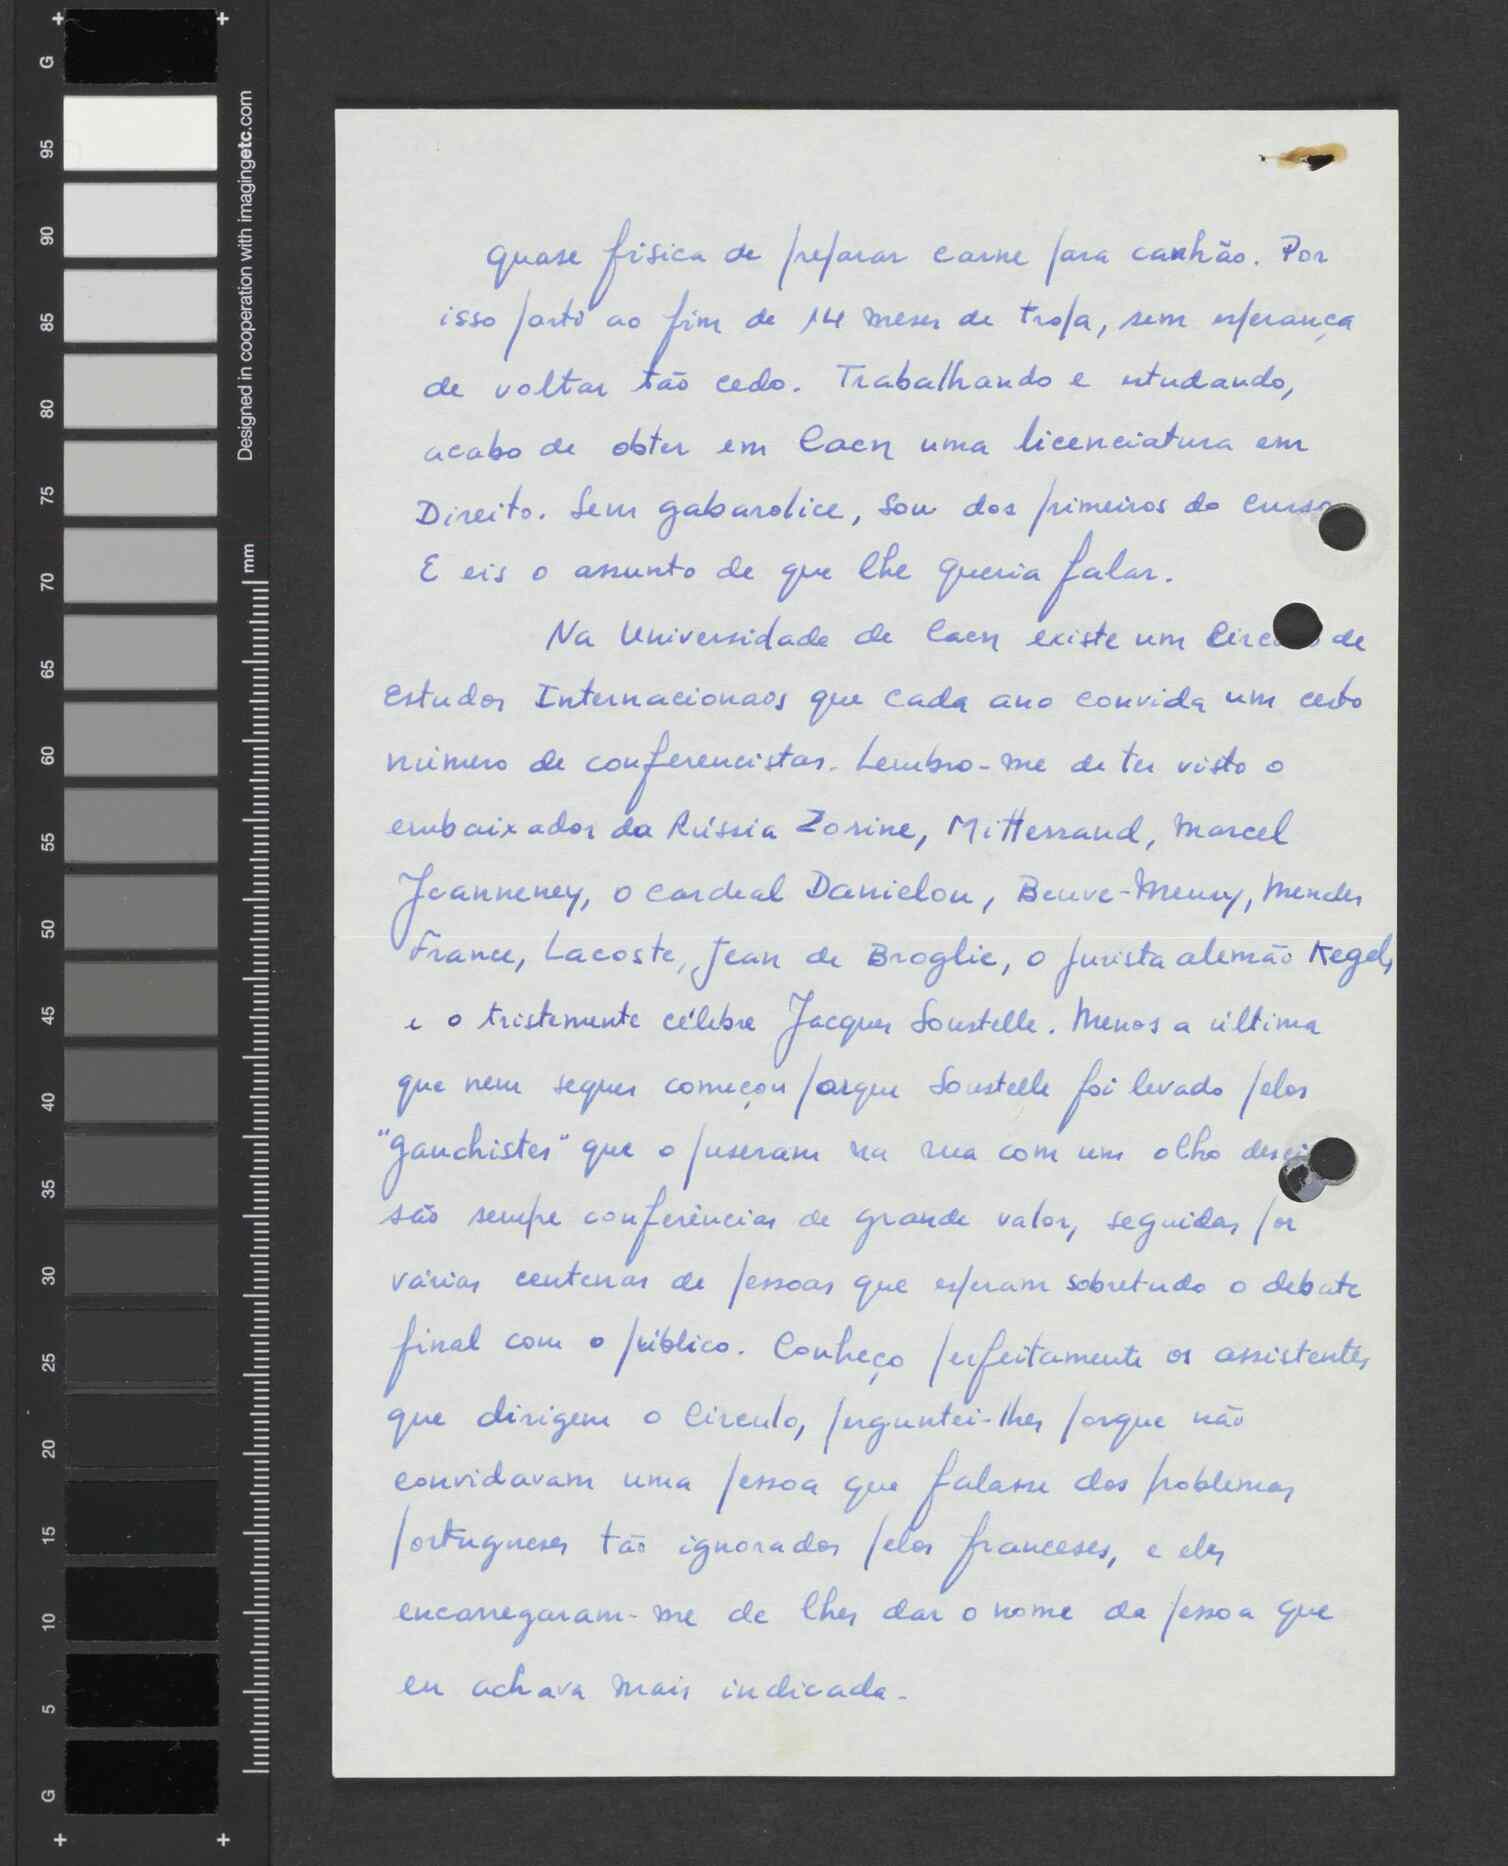 G
95
90
85
80
75
70
65
60
55
50
45
40
35
30
25
20
15
10
5
G
Designed in cooperation with imagingetc.com
mm
quase física de preparar carne para canhão. Por
isso parti ao fim de 14 meses de tropa, sem esperança
de voltar tão cedo. Trabalhando e estudando,
acabo de obter em Caen uma licenciatura em
Direito. Sem gabarolice, sou dos primeiros do curso
E eis o assunto de que lhe queria falar.
Na Universidade de Caen existe um Circ de
Estudos Internacionaos que cada ano convida um certo
número de conferencistas. Lembro-me de ter visto o
embaixador da Rússia Zorine, Mitterrand, Marcel
Jeanneney, o cardeal Danielou, Beuve-Meury, Mendes
France, Lacoste, Jean de Broglie, o jurista alemão Kegel,
e o tristemente célebre Jacques Soustelle. Menos a última
que nem sequer começou porque Soustelle foi levado pelos
"gauchistes" que o puseram na rua com um olho
são sempre conferências de grande valor, seguidas por
várias centenas de pessoas que esperam sobretudo o debate
final com o público. Conheço perfeitamente os assistentes
que dirigem o Circulo, perguntei-lhes porque não
convidavam uma pessoa que falasse dos problemas
portugueses tão ignorados pelos franceses, e eles
encarregaram-me de lhes dar o nome da pessoa que
eu achava mais indicada.